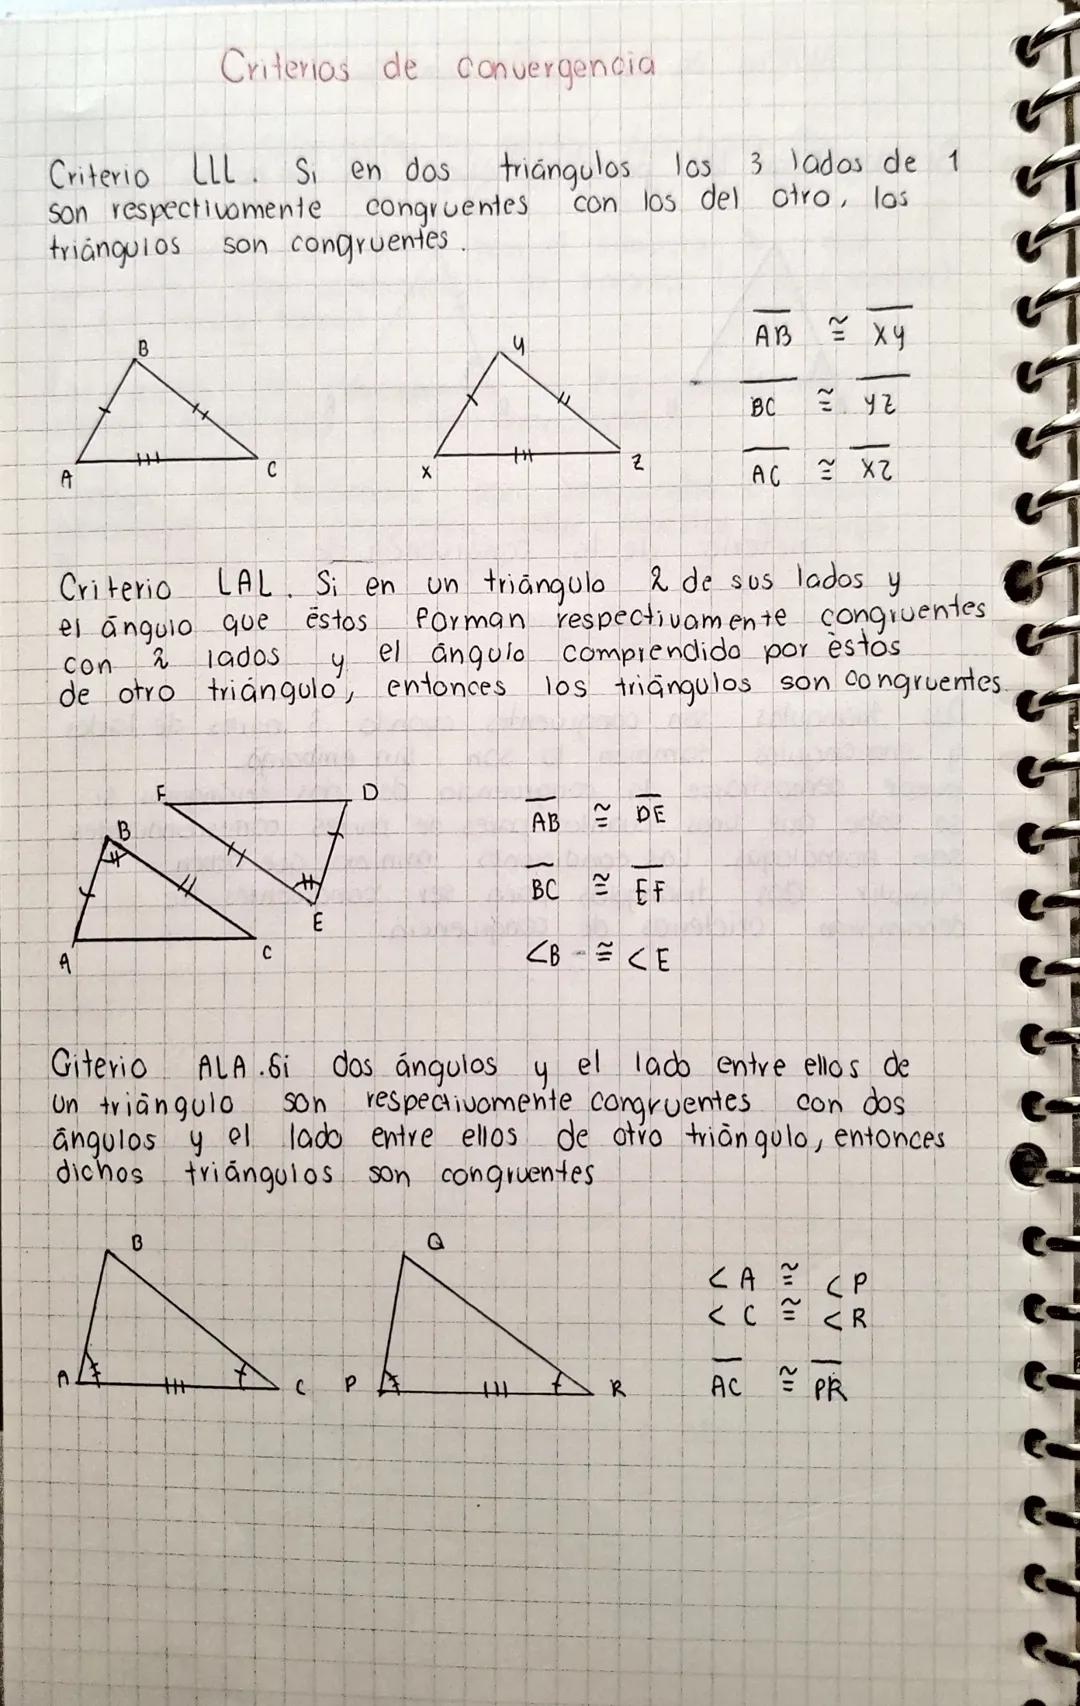 Criterios de convergencia
Criterio LLL. Si en dos triángulos los 3 lados de 1
son respectivamente congruentes con los del otro, los
triángulos son congruentes.
B
A
C
Y
X
Z
AB ≅ XY
BC ≅ YZ
AC ≅ XZ
Criterio LAL. Si en un triángulo 2 de sus lados y
el ángulo que éstos forman respectivamente congruentes
con 2 lados y el ángulo comprendido por éstos
de otro triángulo, entonces los triángulos son congruentes.
F
D
B
E
A
C
AB ≅ DE
BC ≅ EF
<B ≅ <E
Citerio ALA. Si dos ángulos y el lado entre ellos de
un triángulo son respectivamente congruentes con dos
ángulos y el lado entre ellos de otro triángulo, entonces
dichos triángulos son congruentes
B
A
C
Q
P
R
<A ≅ <P
<C ≅ <R
AC ≅ PR